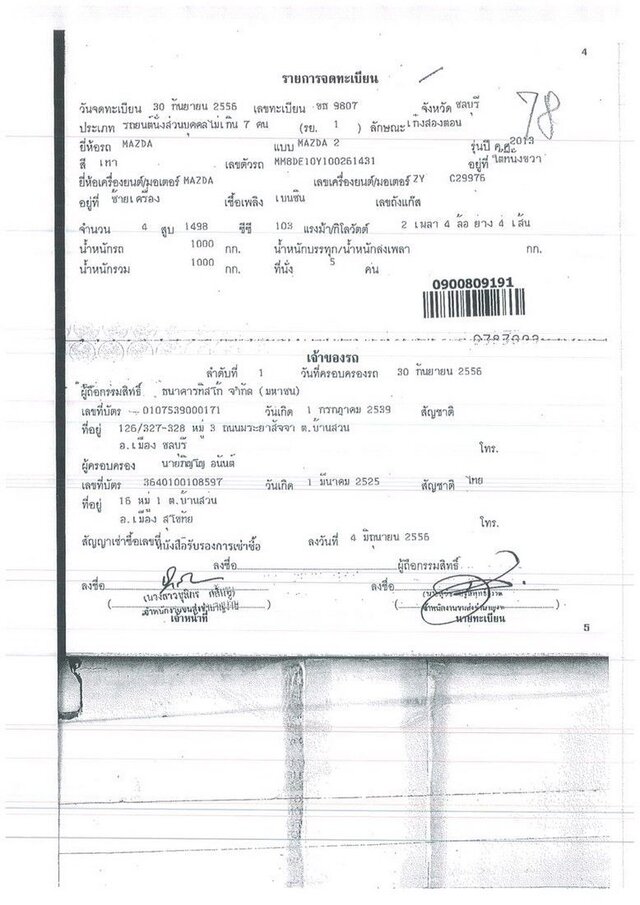 4
รายการจดทะเบียน
78
วันจดทะเบียน 30 กันยายน 2556 เลขทะเบียน ขธ 9807 จังหวัด ชลบุรี
ประเภท รถยนต์นั่งส่วนบุคคลไม่เกิน 7 คน (รย. 1 ) ลักษณะ เก๋งสองตอน
ยี่ห้อรถ MAZDA แบบ MAZDA 2 รุ่นปี ค.ศ. 2013
สี เทา เลขตัวรถ MM8DE10Y100261431 อยู่ที่ ใต้ที่นั่งขวา
ยี่ห้อเครื่องยนต์/มอเตอร์ MAZDA เลขเครื่องยนต์/มอเตอร์ ZY C29976
อยู่ที่ ซ้ายเครื่อง เชื้อเพลิง เบนซิน เลขถังแก๊ส
จำนวน 4 สูบ 1498 ซีซี 103 แรงม้า/กิโลวัตต์ 2 เพลา 4 ล้อ ยาง 4 เส้น
น้ำหนักรถ 1000 กก. น้ำหนักบรรทุก/น้ำหนักลงเพลา กก.
น้ำหนักรวม 1000 กก. ที่นั่ง 5 คน
0900809191
เจ้าของรถ
ลำดับที่ 1 วันที่ครอบครองรถ 30 กันยายน 2556
ผู้ถือกรรมสิทธิ์ ธนาคารทิสโก้ จำกัด (มหาชน)
เลขที่บัตร 0107539000171 วันเกิด 1 กรกฎาคม 2539 สัญชาติ
ที่อยู่ 126/327-328 หมู่ 3 ถนนพระยาสัจจา ต.บ้านสวน
อ.เมือง ชลบุรี โทร.
ผู้ครอบครอง นายภิญโญ อนันต์
เลขที่บัตร 3640100108597 วันเกิด 1 มีนาคม 2525 สัญชาติ ไทย
ที่อยู่ 16 หมู่ 1 ต.บ้านสวน
อ.เมือง สุโขทัย โทร.
สัญญาเช่าซื้อเลขที่ หนังสือรับรองการเช่าซื้อ ลงวันที่ 4 มิถุนายน 2556
ลงชื่อ ผู้ถือกรรมสิทธิ์
ลงชื่อ ลงชื่อ
เจ้าพนักงานขนส่งชำนาญงาน เจ้าพนักงานขนส่งชำนาญงาน
เจ้าหน้าที่ นายทะเบียน
5